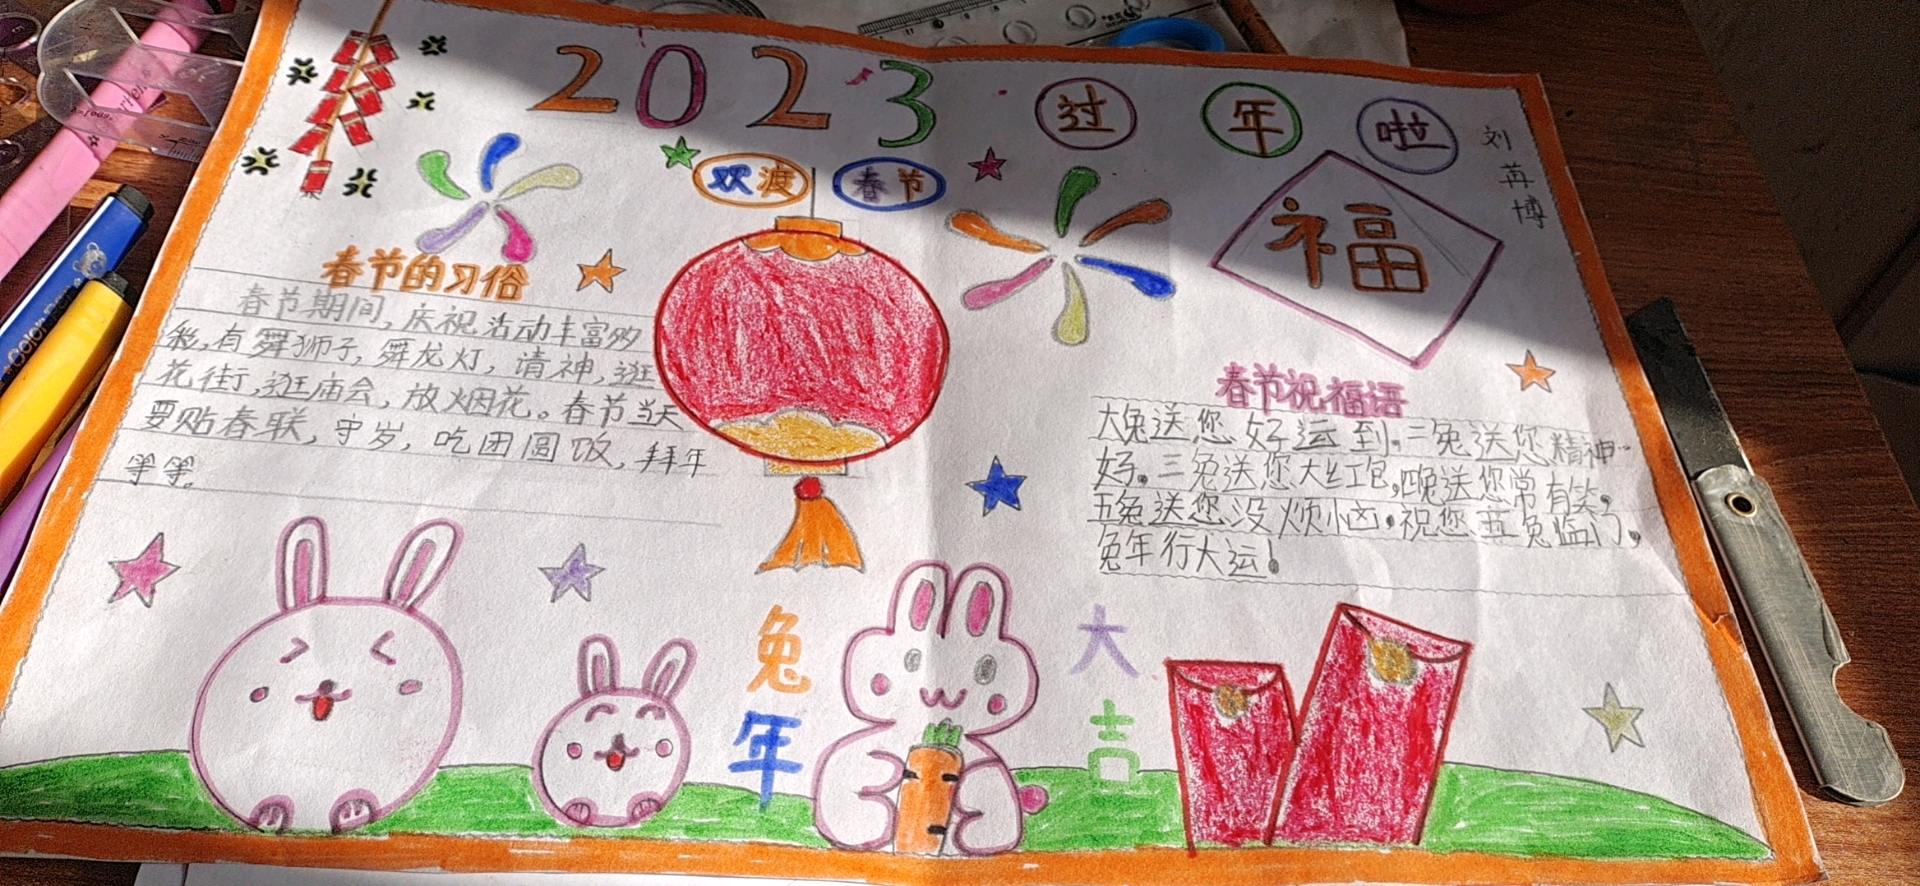 2023 过年啦
刘苒博
欢渡春节
福
春节的习俗
春节期间,庆祝活动丰富多
彩,有舞狮子,舞龙灯,请神,逛
花街,逛庙会,放烟花。春节当天
要贴春联,守岁,吃团圆饭,拜年
等等。
春节祝福语
大兔送您好运到,二兔送您精神
好。三兔送您大红包,四兔送您常有笑,
五兔送您没烦恼。祝您五兔临门,
兔年行大运!
兔年
大吉
Color Pen